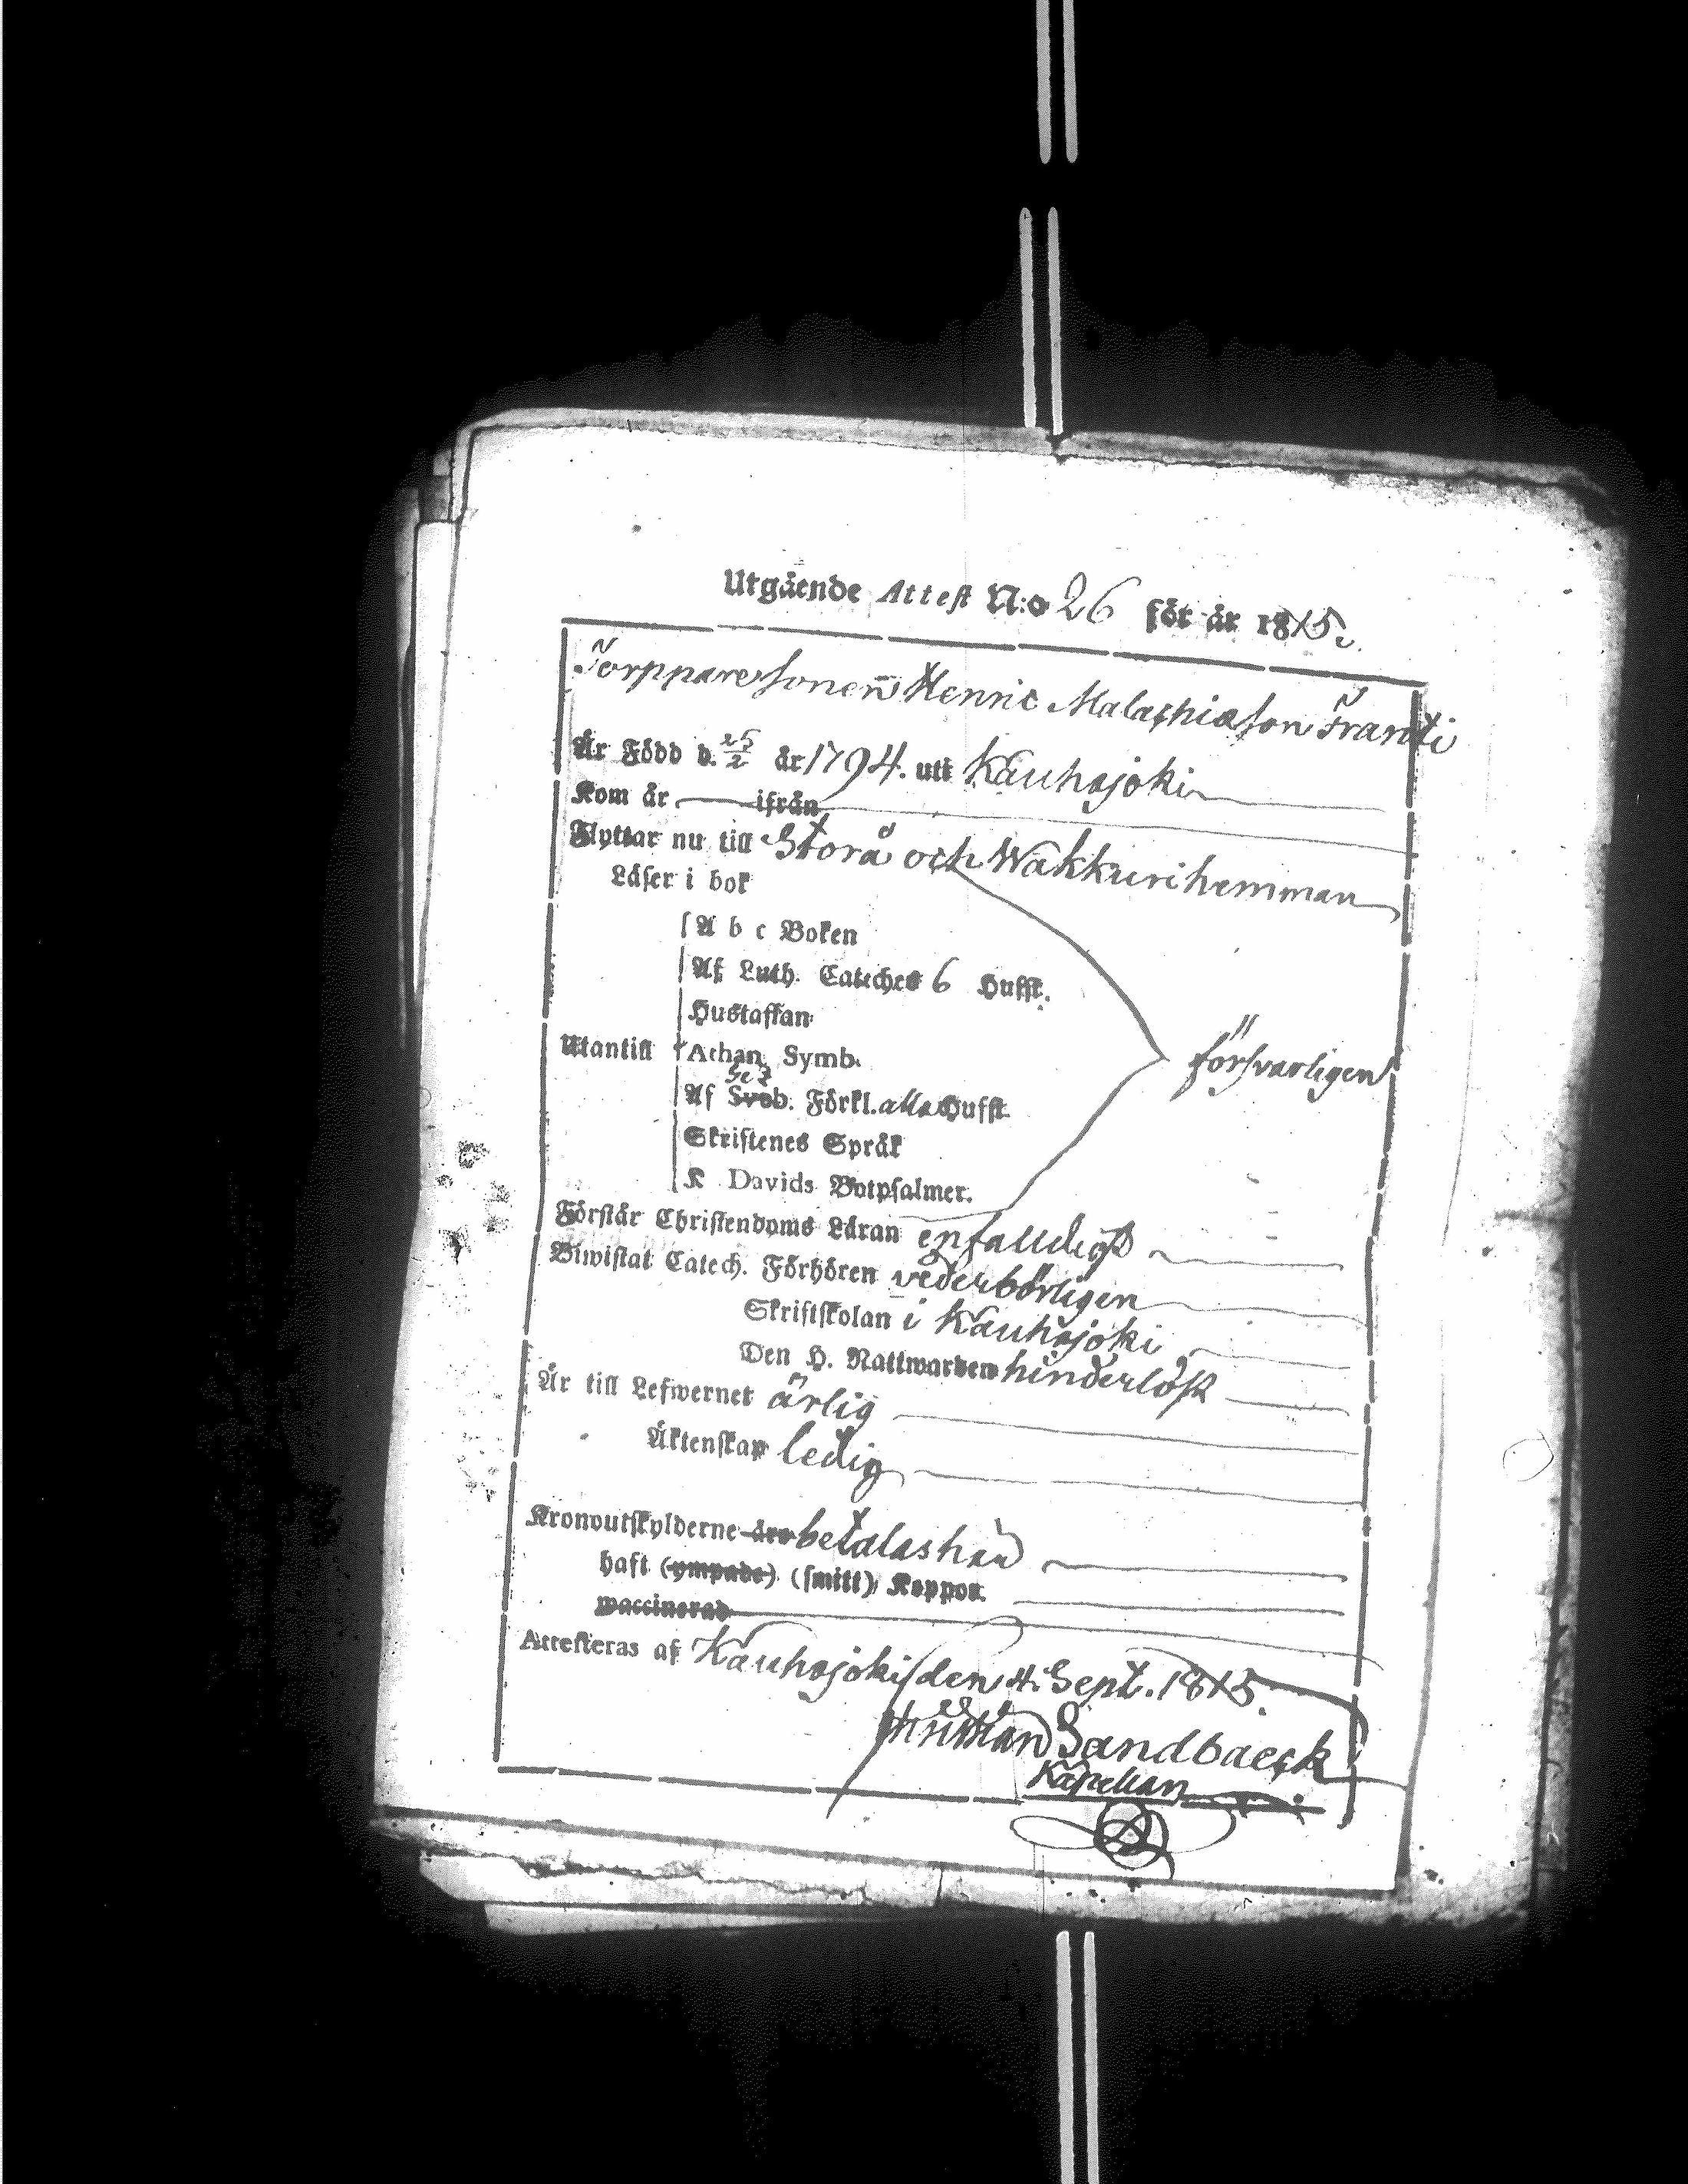 Utgående Attest N:o 26 för år 1815.
Torpparesonen Henric Malachiasson Franti
Är Född d. 25/2 år 1794. uti Kauhajoki
Kom år ifrån
Flyttar nu till Storå och Wakkuri hemman
Läser i bok
A b c Boken
Af Luth. Cateches 6 Hufst.
Hustaflan
Utantill Athan. Symb. försvarligen
Af Sveb. Förkl. alla Hufst.
Skriftenes Språk
K Davids Botpsalmer.
Förstår Christendoms Läran enfalldigt
Biwistat Catech. Förhören vederbörligen
Skriftskolan i Kauhajoki
Den H. Nattwarden hinderlöst
Är till Lefwernet ärlig
Äktenskap ledig
Kronoutskylderne äro betalas här
haft (ympade) (smitt) Koppor.
waccinerad
Attesteras af Kauhajoki den 4. Sept. 1815.
Christian Sandbaeck
Kapellan